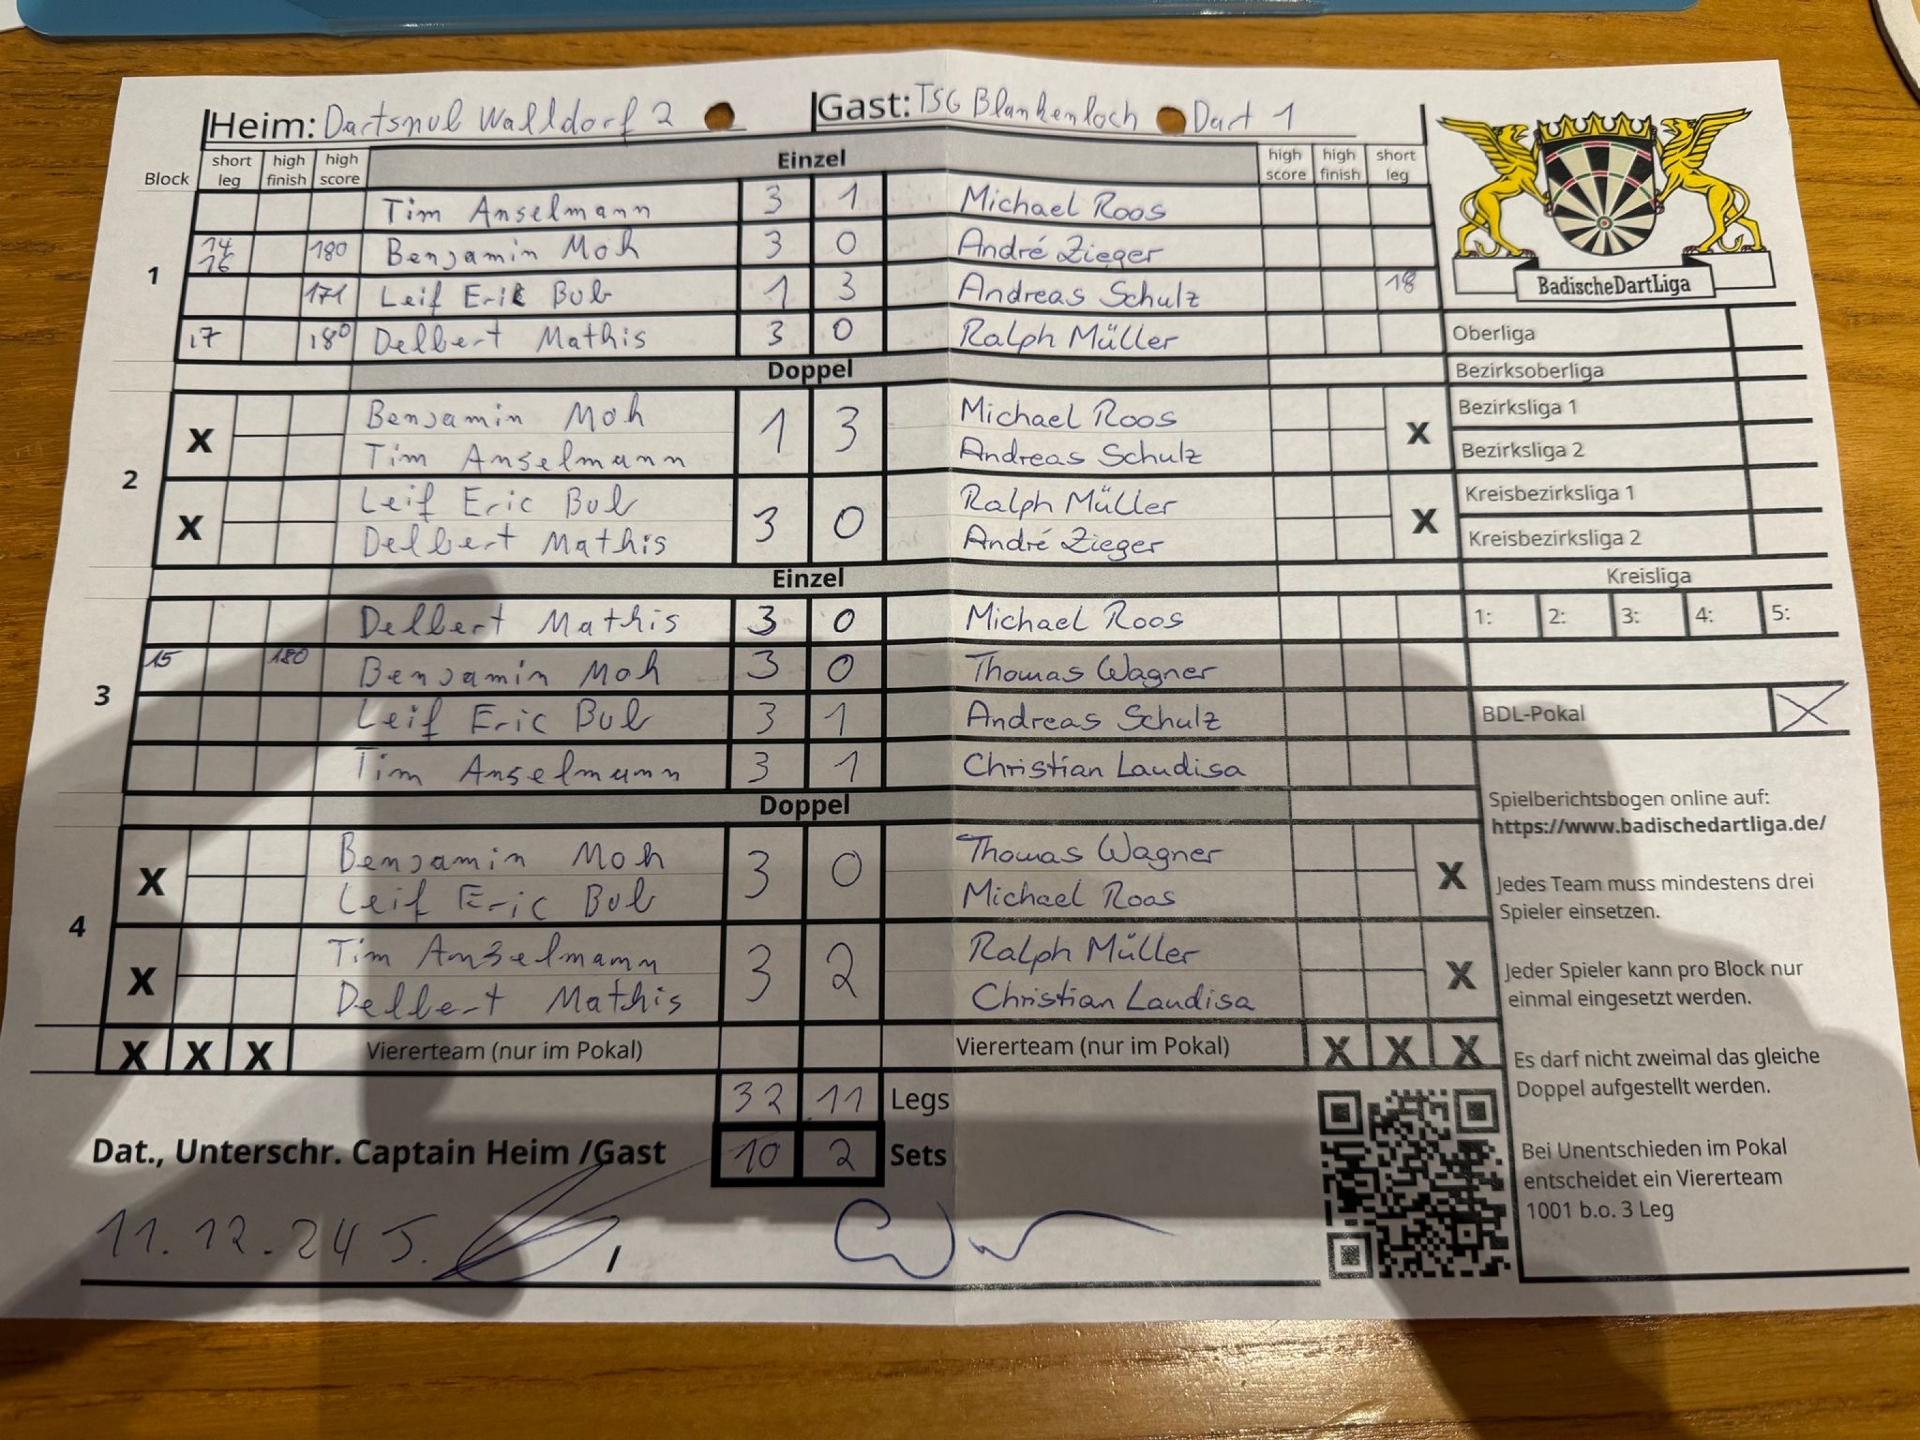 Heim: Dartsnub Walldorf 2 Gast: TSG Blankenloch Dart 1
Block short leg high finish high score Einzel high score high finish short leg
1
Tim Anselmann 3 1 Michael Roos
14 16 180 Benjamin Moh 3 0 André Zieger
171 Leif Eric Bub 1 3 Andreas Schulz 18
17 180 Delbert Mathis 3 0 Ralph Müller
Doppel
2
X Benjamin Moh 1 3 Michael Roos X
Tim Anselmann Andreas Schulz
X Leif Eric Bub 3 0 Ralph Müller X
Delbert Mathis André Zieger
Einzel
3
Delbert Mathis 3 0 Michael Roos
15 180 Benjamin Moh 3 0 Thomas Wagner
Leif Eric Bub 3 1 Andreas Schulz
Tim Anselmann 3 1 Christian Laudisa
Doppel
4
X Benjamin Moh 3 0 Thomas Wagner X
Leif Eric Bub Michael Roos
X Tim Anselmann 3 2 Ralph Müller X
Delbert Mathis Christian Laudisa
X X X Viererteam (nur im Pokal) Viererteam (nur im Pokal) X X X
32 11 Legs
10 2 Sets
Dat., Unterschr. Captain Heim /Gast
11.12.24 J. /
BadischeDartLiga
Oberliga
Bezirksoberliga
Bezirksliga 1
Bezirksliga 2
Kreisbezirksliga 1
Kreisbezirksliga 2
Kreisliga
1: 2: 3: 4: 5:
BDL-Pokal X
Spielberichtsbogen online auf:
https://www.badischedartliga.de/
Jedes Team muss mindestens drei
Spieler einsetzen.
Jeder Spieler kann pro Block nur
einmal eingesetzt werden.
Es darf nicht zweimal das gleiche
Doppel aufgestellt werden.
Bei Unentschieden im Pokal
entscheidet ein Viererteam
1001 b.o. 3 Leg